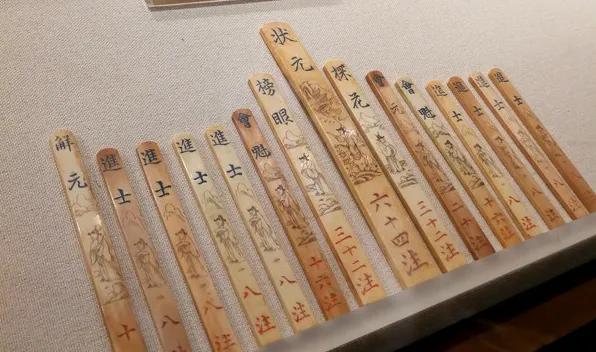 解元 十
進士 八
進士 八注
進士 八注
進士 八注
會魁 十六注
榜眼 三十二注
狀元 六十四注
探花 三十二注
會元 二十注
會魁 十六注
進士 八注
進士 八
進士 八
進士